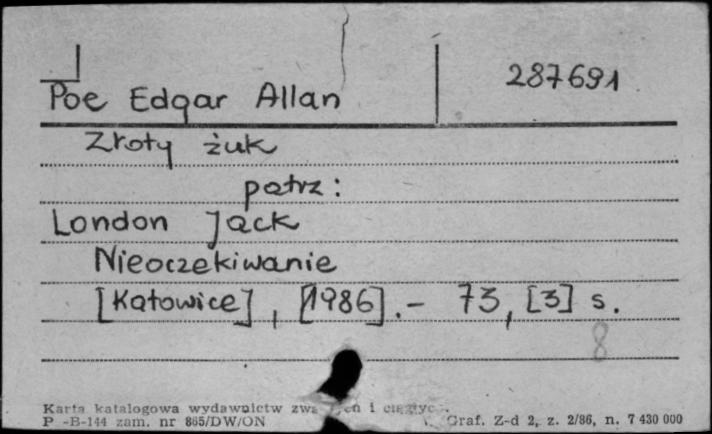 287691
Poe Edgar Allan
Złoty żuk
patrz:
London Jack
Nieoczekiwanie
[Katowice], [1986]. - 73, [3] s.
8
Karta katalogowa wydawnictw i
P -B-144 zam. nr 865/DW/ON Graf. Z-d 2, z. 2/86, n. 7 430 000